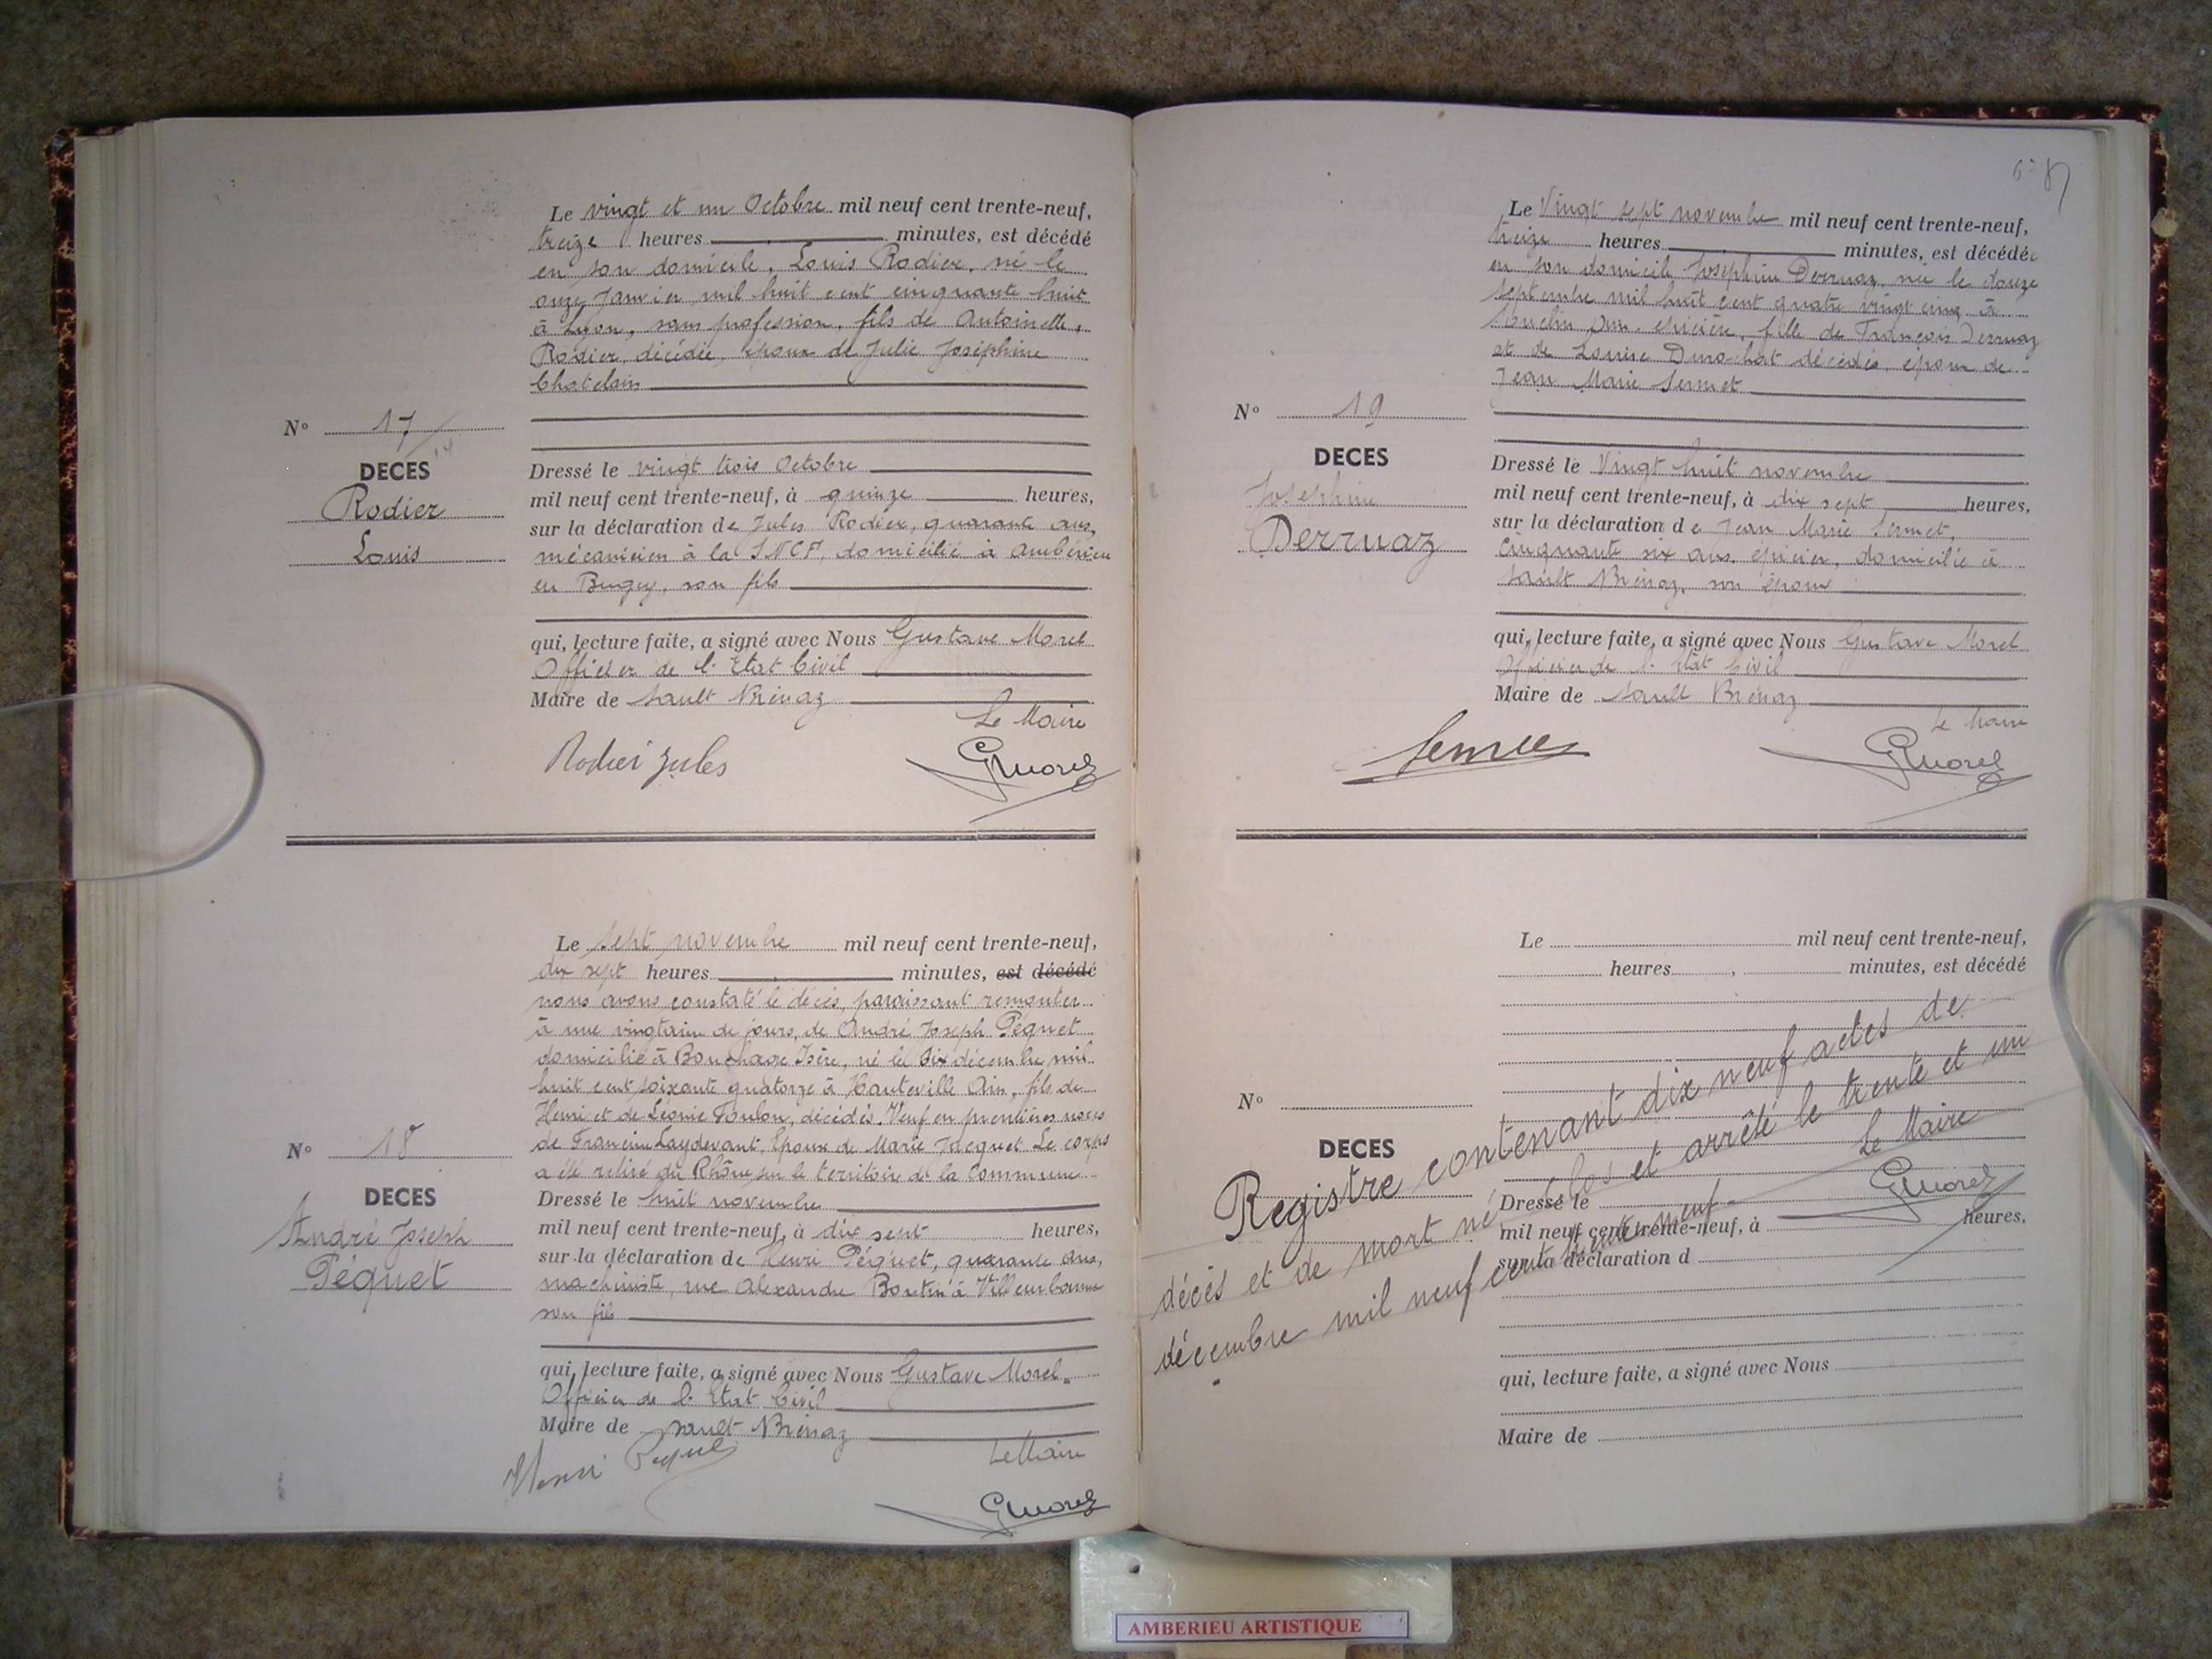 Le vingt et un Octobre mil neuf cent trente-neuf,
treize heures minutes, est décédé
en son domicile, Louis Rodier, né le
onze Janvier mil huit cent cinquante huit
à Lyon, sans profession, fils de Antoinette,
Rodier, décédée, époux de Julie Joséphine
Chatelain
N° 17
DECES
Rodier
Louis
Dressé le vingt trois Octobre
mil neuf cent trente-neuf, à quinze heures,
sur la déclaration de Jules Rodier, quarante ans,
mécanicien à la SNCF, domicilié à Ambérieu
en Bugey, son fils
qui, lecture faite, a signé avec Nous Gustave Morel
Officier de l'Etat Civil
Maire de Sault Brénaz
Le Maire
Rodier Jules
GMorel
Le sept novembre mil neuf cent trente-neuf,
dix sept heures minutes, est décédé
nous avons constaté le décés, paraissant remonter
à une vingtaine de jours, de André Joseph Péquet
domicilié à Bouchage Isère, né le dix décembre mil
huit cent soixante quatorze à Hauteville Ain, fils de
Henri et de Léonie Toulon, décédés. Veuf en premières noces
de Francine Laydevant. Epoux de Marie Jacquet Le corps
a été retiré du Rhône sur le territoire de la Commune
N° 18
DECES
André Joseph
Péquet
Dressé le huit novembre
mil neuf cent trente-neuf, à dix sept heures,
sur la déclaration de Henri Péquet, quarante ans,
machiniste, rue Alexandre Boutin à Villeurbanne
son fils
qui, lecture faite, a signé avec Nous Gustave Morel
Officier de l'Etat Civil
Maire de Sault Brénaz
Henri Pequet
Le Maire
GMorel
Le Vingt sept novembre mil neuf cent trente-neuf,
treize heures minutes, est décédée
en son domicile Joséphine Derruaz, née le douze
septembre mil huit cent quatre vingt cinq à
Ain, épicière, fille de François Derruaz
et de Louise Durochat décédés, épouse de
Jean Marie Sermet
N° 19
DECES
Joséphine
Derruaz
Dressé le Vingt huit novembre
mil neuf cent trente-neuf, à dix sept heures,
sur la déclaration de Jean Marie Sermet,
cinquante six ans, épicier, domicilié à
Sault Brénaz, son époux
qui, lecture faite, a signé avec Nous Gustave Morel
Officier de l'Etat Civil
Maire de Sault Brénaz
Le Maire
Sermet
GMorel
Le mil neuf cent trente-neuf,
heures minutes, est décédé
N°
DECES
Dressé le
mil neuf cent trente-neuf, à heures,
sur la déclaration d
qui, lecture faite, a signé avec Nous
Maire de
Registre contenant dix neuf actes de
décès et de mort né clos et arrêté le trente et un
décembre mil neuf cent trente neuf
Le Maire
GMorel
AMBERIEU ARTISTIQUE